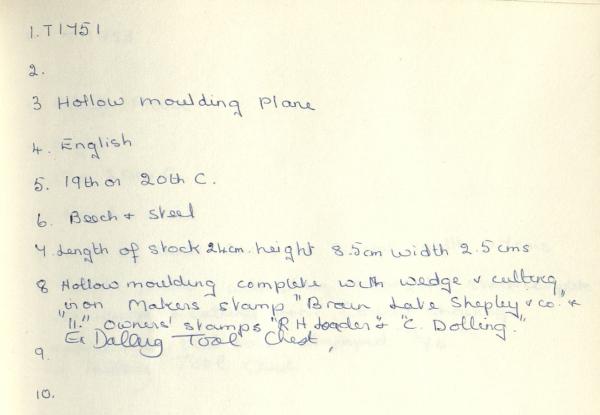 1. T1751
2.
3 Hollow moulding Plane
4. English
5. 19th or 20th C.
6. Beech & steel
7. Length of stock 24cm. height 8.5cm width 2.5cms
8 Hollow moulding complete with wedge & cutting
iron Makers stamp "Brown Late Shepley & co. &
"11." owners' stamps "R H Loader" & "C. Dolling."
Ex Dalling Tool Chest,
9.
10.